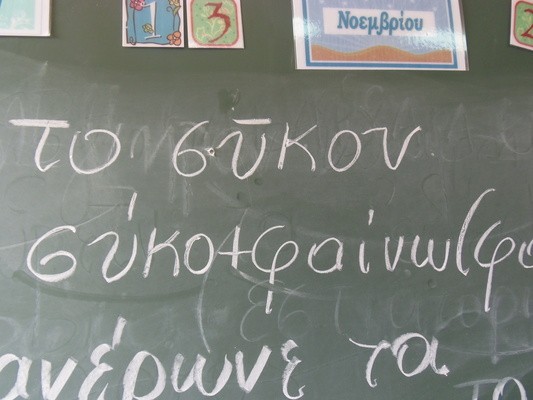 1 3 Νοεμβρίου 2
το σῦκον
σύκο+φαίνω(φα
ανέρωνε τα
το